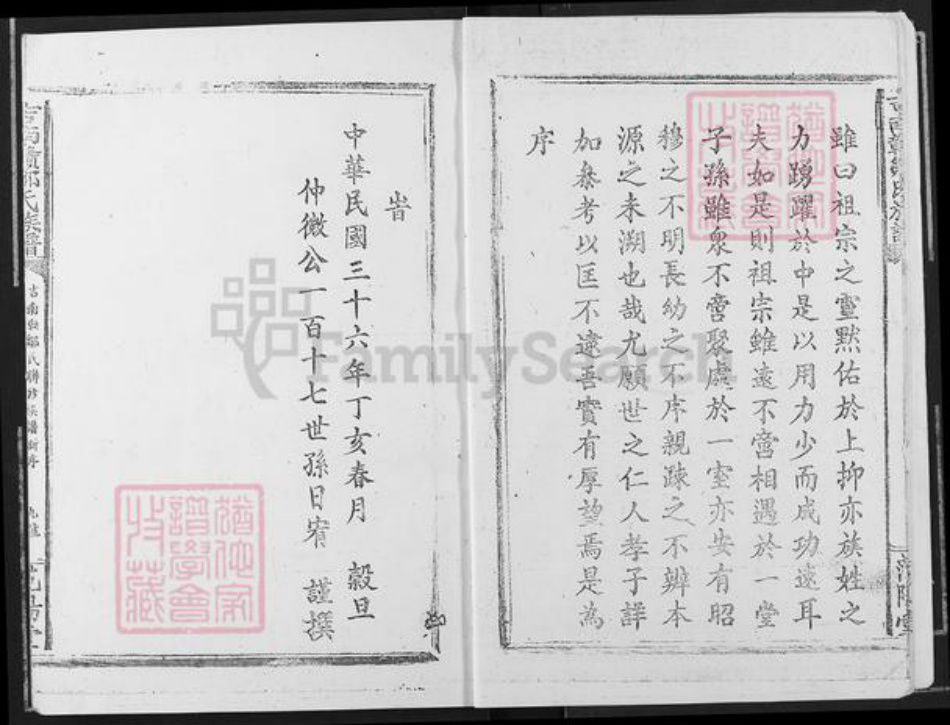 雖曰祖宗之靈默佑於上抑亦族姓之
力踴躍於中是以用力少而成功速耳
夫如是則祖宗雖遠不啻相遇於一堂
子孫雖衆不啻聚處於一室亦安有昭
穆之不明長幼之不序親疎之不辨本
源之未溯也哉尤願世之仁人孝子詳
加叅考以匡不逮吾實有厚望焉是為
序
旹
中華民國三十六年丁亥春月 穀旦
仲微公一百十七世孫日宥 謹撰
FamilySearch